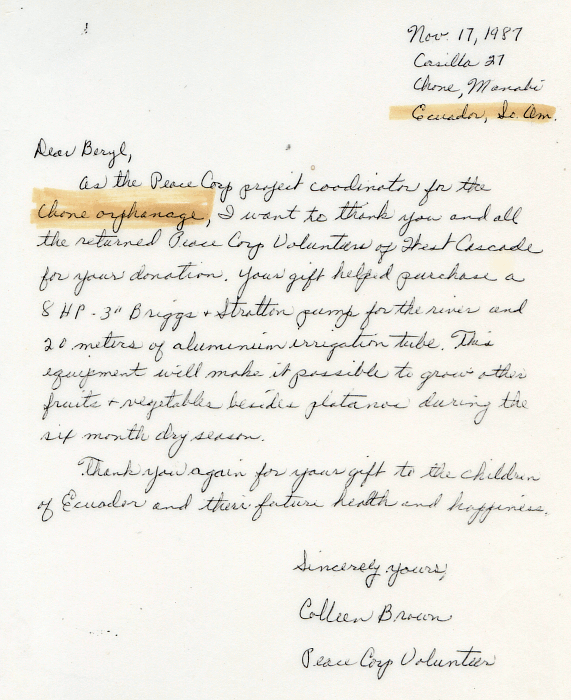 Nov. 17, 1987
Casilla 27
Chone, Manabi
Ecuador, So. Am.
Dear Beryl,
As the Peace Corp project coordinator for the
Chone orphanage, I want to thank you and all
the returned Peace Corp Volunteers of West Cascade
for your donation. Your gift helped purchase a
8 HP - 3" Briggs + Stratton pump for the river and
20 meters of aluminium irrigation tube. This
equipment will make it possible to grow other
fruits + vegetables besides platanos during the
six month dry season.
Thank you again for your gift to the children
of Ecuador and their future health and happiness.
Sincerely yours,
Colleen Brown
Peace Corp Volunteer